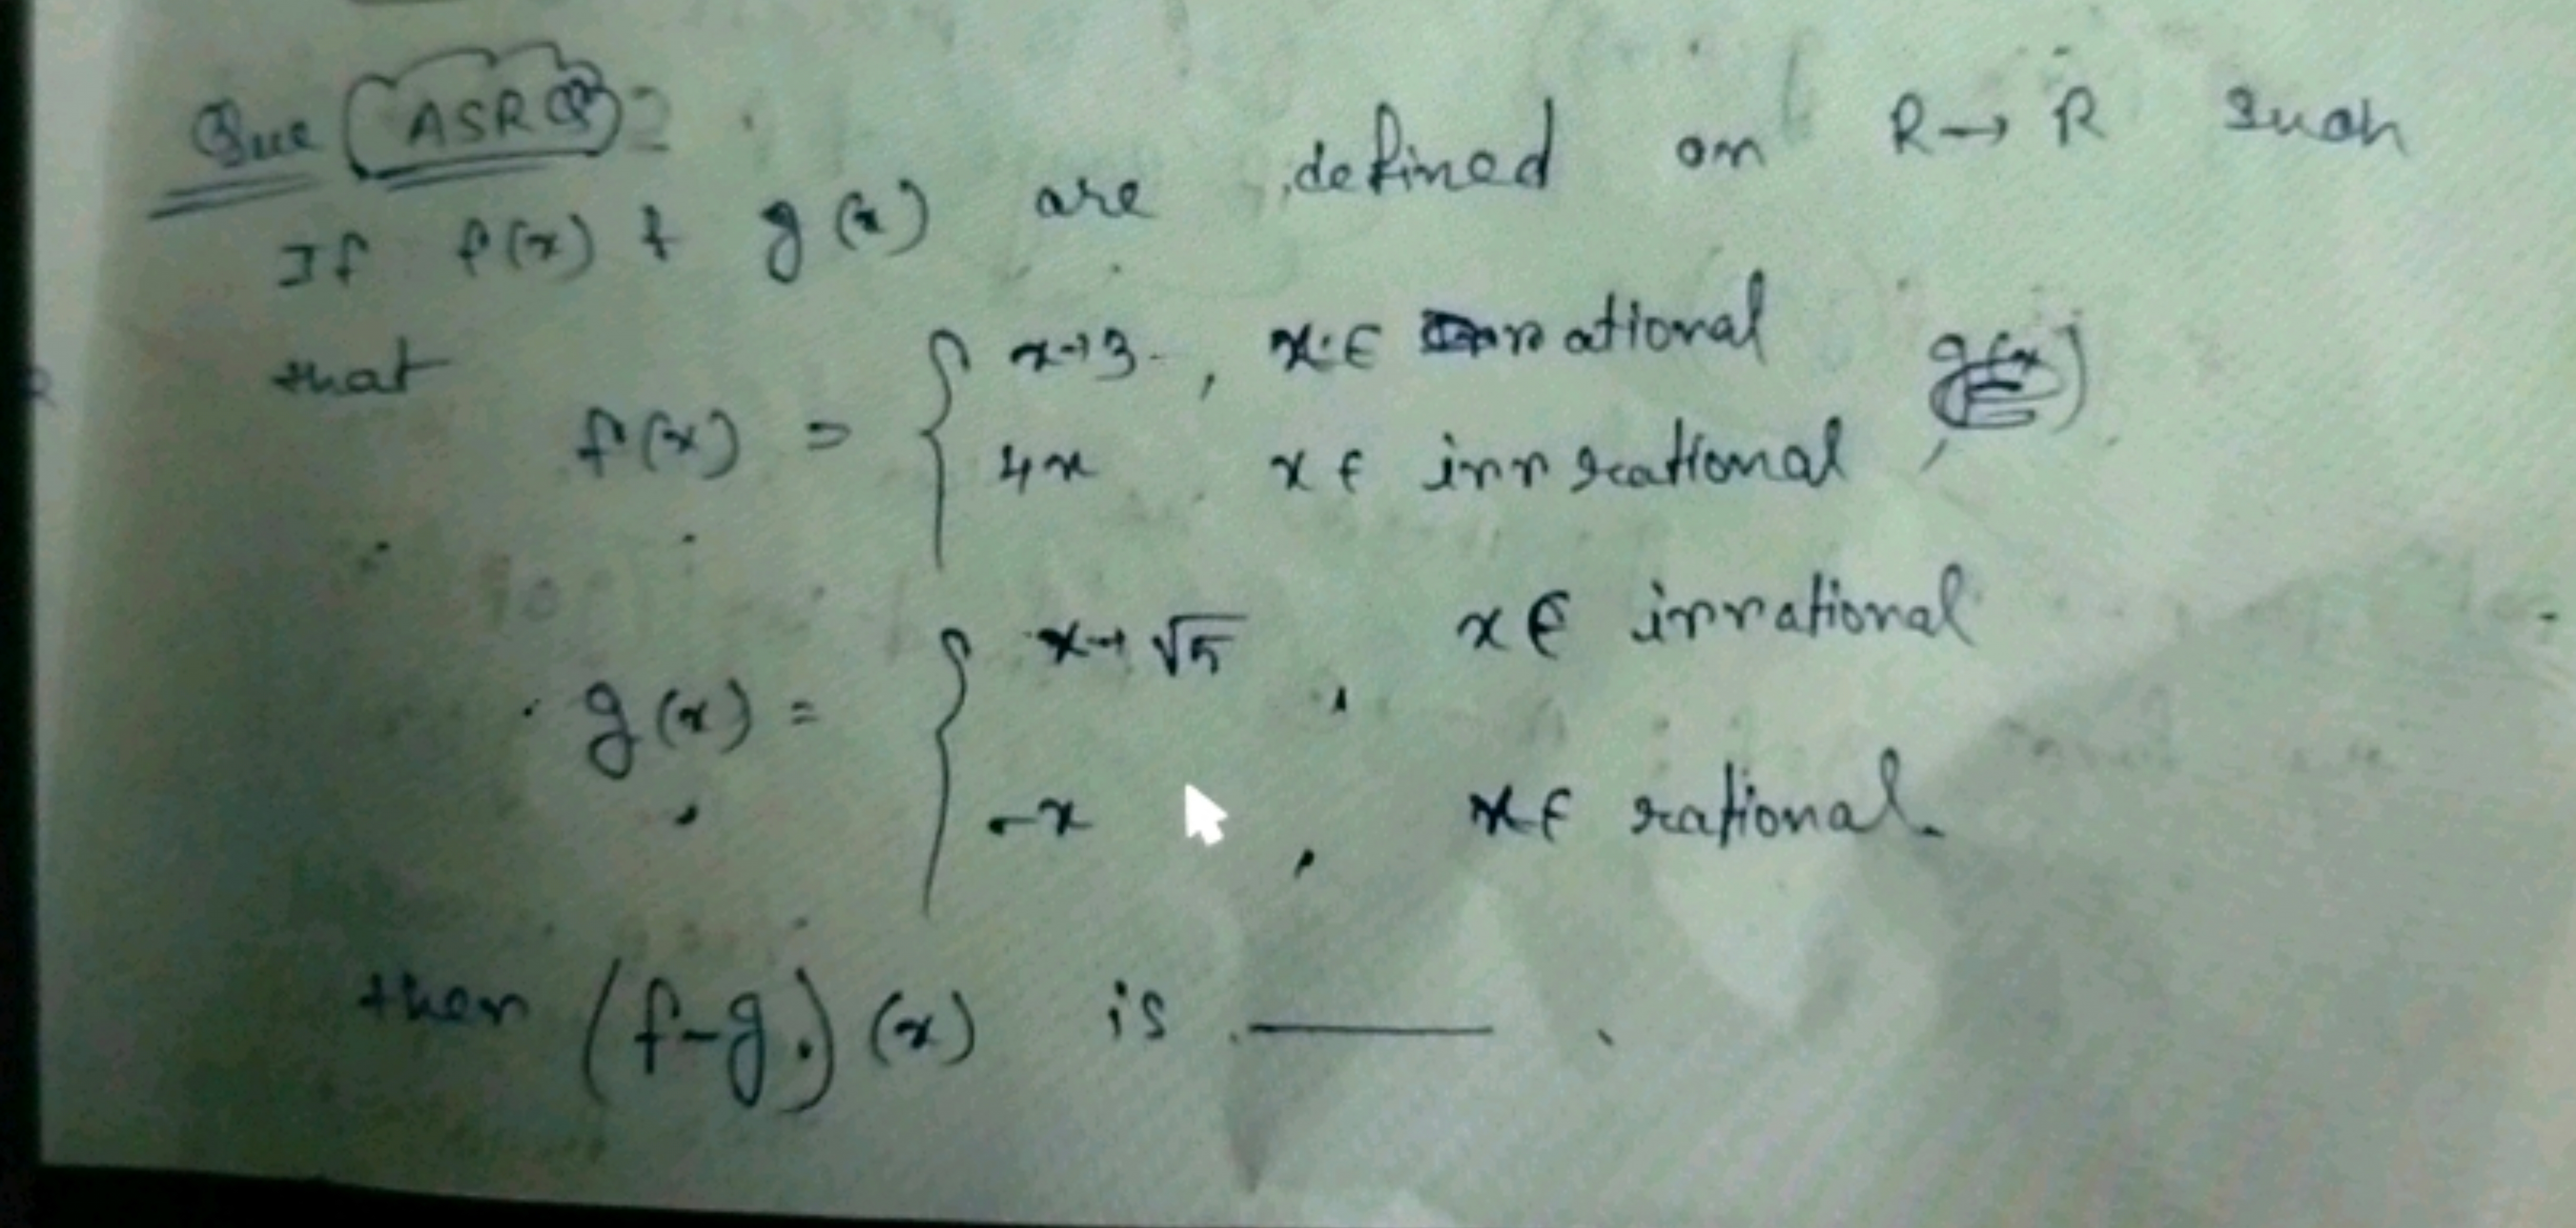 Que (ASRQ)
If f(x) & g(x) are defined on R→R such
that
f(x) = { x+3 , x∈ rational
4x x∈ irrrational ,
g(x) = { x+√5 , x∈ irrational
-x , x∈ rational.
then (f-g)(x) is ______ .